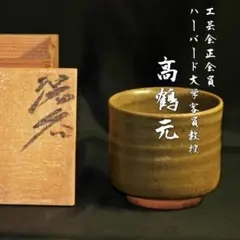 工芸会正会員
ハーバード大学客員教授
高鶴元